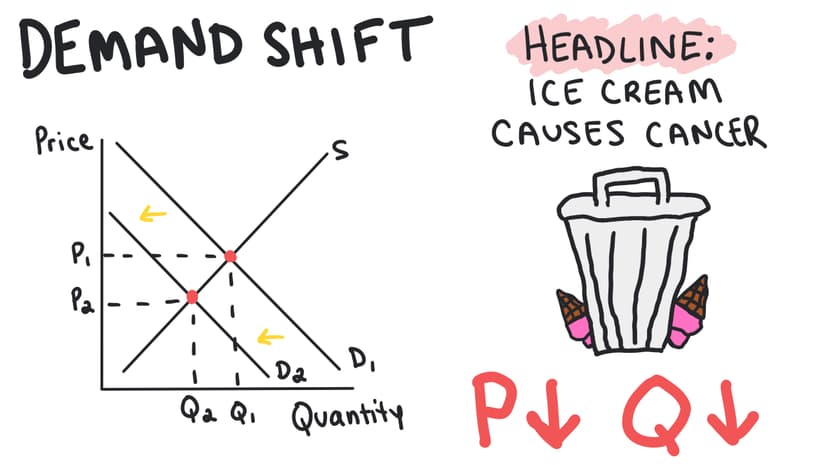 DEMAND SHIFT
HEADLINE:
ICE CREAM
CAUSES CANCER
Price
S
P₁
P₂
D₂
D₁
Q₂ Q₁ Quantity
P↓ Q↓